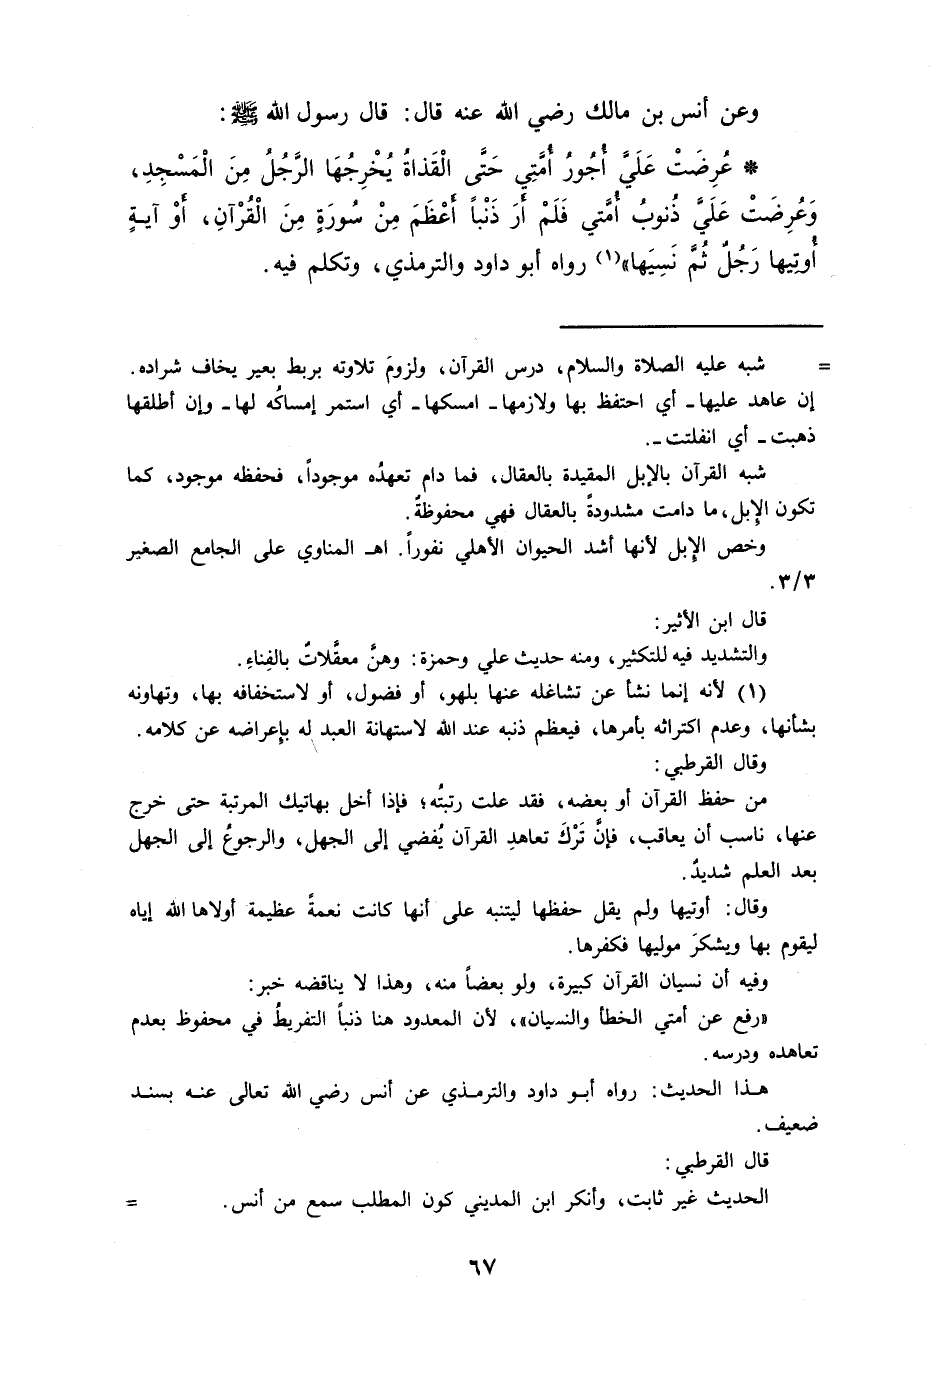 وعن أنس بن مالك رضي الله عنه قال: قال رسول الله ﷺ:
* عُرِضَتْ عَلَيَّ أُجُورُ أُمَّتِي حَتَّى الْقَذاةُ يُخْرِجُهَا الرَّجُلُ مِنَ الْمَسْجِدِ،
وَعُرِضَتْ عَلَيَّ ذُنوبُ أُمَّتي فَلَمْ أَرَ ذَنْباً أَعْظَمَ مِنْ سُورَةٍ مِنَ الْقُرْآنِ، أَوْ آيـةٍ
أُوتِيها رَجُلٌ ثُمَّ نَسِيَها»(١) رواه أبو داود والترمذي، وتكلم فيه.
= شبه عليه الصلاة والسلام، درس القرآن، ولزومَ تلاوته بربط بعير يخاف شراده.
إن عاهد عليها ـ أي احتفظ بها ولازمها ـ امسكها ـ أي استمر إمساكُه لها ـ وإن أطلقها
ذهبت ـ أي انفلتت ـ.
شبه القرآن بالإبل المقيدة بالعقال، فما دام تعهدُه موجوداً، فحفظه موجود، كما
تكون الإبل، ما دامت مشدودةً بالعقال فهي محفوظةٌ.
وخص الإبل لأنها أشد الحيوان الأهلي نفوراً. اهـ المناوي على الجامع الصغير
٣/٣.
قال ابن الأثير:
والتشديد فيه للتكثير، ومنه حديث علي وحمزة: وهنَّ معقَّلاتٌ بالفِناءِ.
(١) لأنه إنما نشأ عن تشاغله عنها بلهو، أو فضول، أو لاستخفافه بها، وتهاونه
بشأنها، وعدم اكتراثه بأمرها، فيعظم ذنبه عند الله لاستهانة العبد له بإعراضه عن كلامه.
وقال القرطبي:
من حفظ القرآن أو بعضه، فقد علت رتبتُه؛ فإذا أخل بهاتيك المرتبة حتى خرج
عنها، ناسب أن يعاقب، فإنَّ تَرْكَ تعاهدِ القرآن يُفضي إلى الجهل، والرجوعُ إلى الجهل
بعد العلم شديدٌ.
وقال: أوتيها ولم يقل حفظها ليتنبه على أنها كانت نعمةً عظيمة أولاها الله إياه
ليقوم بها ويشكرَ موليها فكفرها.
وفيه أن نسيان القرآن كبيرة، ولو بعضاً منه، وهذا لا يناقضه خبر:
«رفع عن أمتي الخطأ والنسيان»، لأن المعدود هنا ذنباً التفريطُ في محفوظ بعدم
تعاهده ودرسه.
هـذا الحديث: رواه أبـو داود والترمـذي عن أنس رضي الله تعالى عنـه بسنـد
ضعيف.
قال القرطبي:
الحديث غير ثابت، وأنكر ابن المديني كون المطلب سمع من أنس. =
٦٧